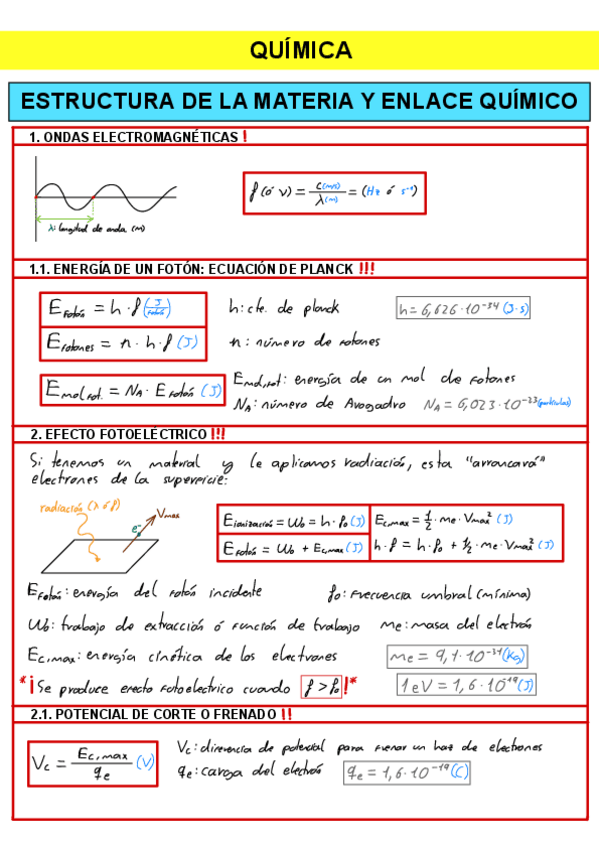 QUÍMICA
ESTRUCTURA DE LA MATERIA Y ENLACE QUÍMICO
1. ONDAS ELECTROMAGNÉTICAS !
f (ó ν) = c(m/s) / λ(m) = (Hz ó s⁻¹)
λ: longitud de onda (m)
1.1. ENERGÍA DE UN FOTÓN: ECUACIÓN DE PLANCK !!!
E Fotón = h · f (J/fotón)
h: cte. de planck
h = 6,626 · 10⁻³⁴ (J·s)
E fotones = n · h · f (J)
n: número de fotones
E mol fot. = NA · E Fotón (J)
E mol,fot: energía de un mol de fotones
NA: número de Avogadro NA = 6,023 · 10⁻²³ (partículas)
2. EFECTO FOTOELÉCTRICO !!!
Si tenemos un material y le aplicamos radiación, esta "arrancará"
electrones de la superficie:
radiación (λ ó f)
e⁻
Vmax
E ionización = W₀ = h · f₀ (J)
Ec,max = 1/2 · me · Vmax² (J)
E fotón = W₀ + Ec,max (J)
h · f = h · f₀ + 1/2 · me · Vmax² (J)
E Fotón: energía del fotón incidente
f₀: Frecuencia umbral (mínima)
W₀: trabajo de extracción ó función de trabajo
me: masa del electrón
Ec,max: energía cinética de los electrones
me = 9,1 · 10⁻³¹ (Kg)
*¡Se produce efecto fotoelectrico cuando f > f₀!*
1eV = 1,6 · 10⁻¹⁹ (J)
2.1. POTENCIAL DE CORTE O FRENADO !!
Vc = Ec,max / qe (V)
Vc: diferencia de potencial para frenar un haz de electrones
qe: carga del electrón
qe = 1,6 · 10⁻¹⁹ (C)